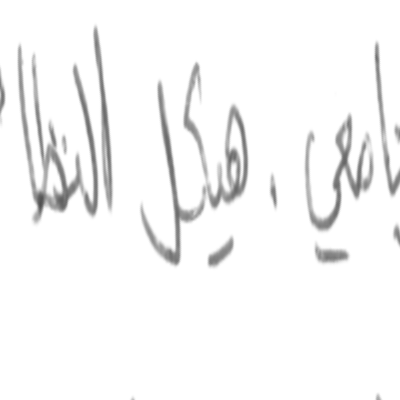 جامعي . هيكل النظا